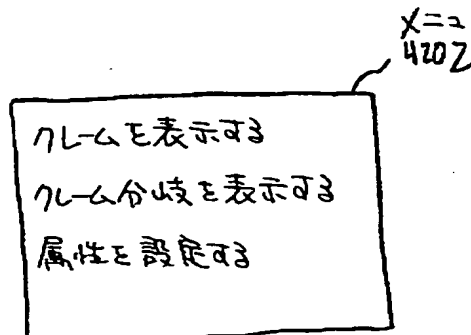 メニュー
4202
クレームを表示する
クレーム分岐を表示する
属性を設定する